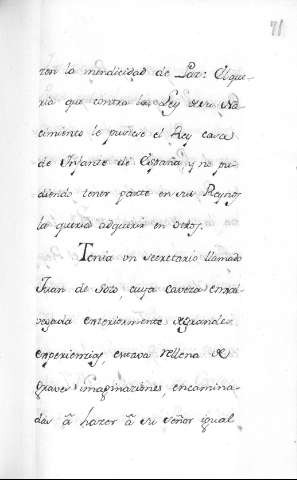 71
ron la mendicidad de Paz: El que-
ria que contra la Ley de su Na-
cimiento le pusiese el Rey casa
de Infante de España, y no pu-
diendo tener parte en sus Reynos
la queria adquirir en otros.
Tenia un Secretario llamado
Juan de Soto, cuya caveza
exteriormente de grandes
experiencias, estava rellena de
graves imaginaziones, encamina-
das â hazer â su Señor igual